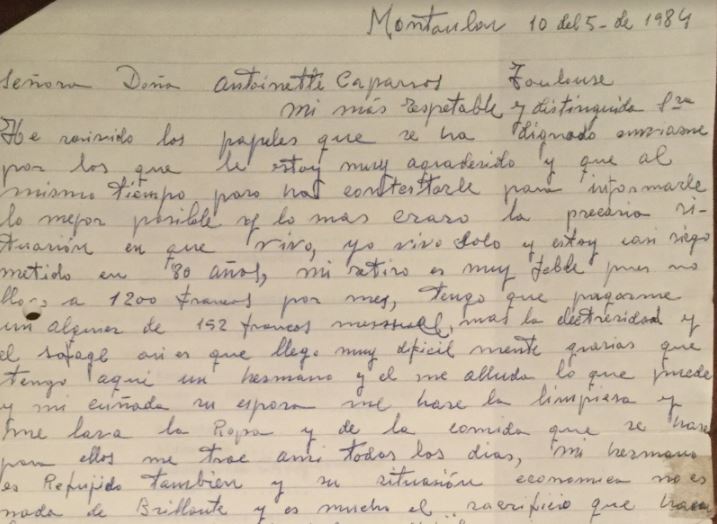 Montauban 10 del 5- de 1984
Señora Doña Antoinette Caparros Toulouse
mi más respetable y distinguida Sra
He resivido los papeles que se ha dignado enviarme
por los que le estoy muy agradesido y que al
mismo tiempo paso ha contesttarle para informarle
lo mejor posible y lo mas craro la precaria si-
tuasión en que vivo, yo vivo solo y estoy casi siego
metido en 80 años, mi retiro es muy feble pues no
llega a 1200 francos por mes, tengo que pagarme
un alquiler de 152 francos mensuel, mas la electresidad y
el sofage asi es que llego muy dificil mente grasias que
tengo aqui un hermano y el me alluda lo que puede
y mi cuñada su esposa me hase la limpiesa y
me lava la Ropa y de la comida que se hase
para ellos me trae ami todos los dias, mi hermano
es Refujido tambien y su situasión economica no es
nada de Brillante y es mucho el sacrificio que hasen